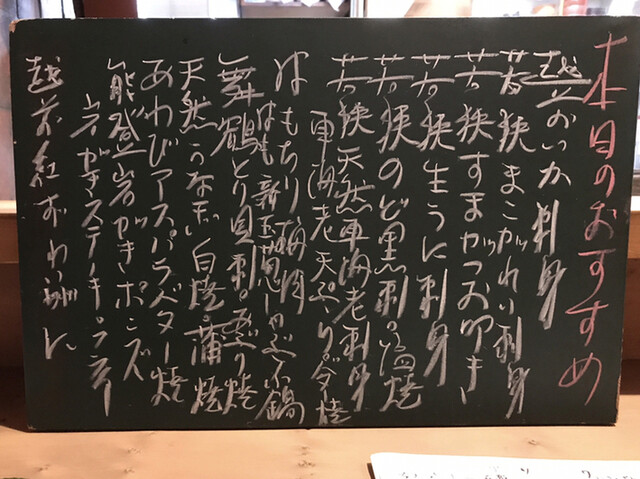 本日のおすすめ
越前あおいか刺身
若狭まこがれい刺身
若狭すまがつお叩き
若狭生うに刺身
若狭のど黒刺。塩焼
若狭天然車海老刺身
車海老天ぷら
はもちり梅肉
はも新玉葱しゃぶ鍋
舞鶴とり貝刺。炙り焼
天然うなぎ白焼。蒲焼
あわびアスパラバター焼
能登岩がきポンズ
岩がきステーキ。フライ
越前紅ずわい